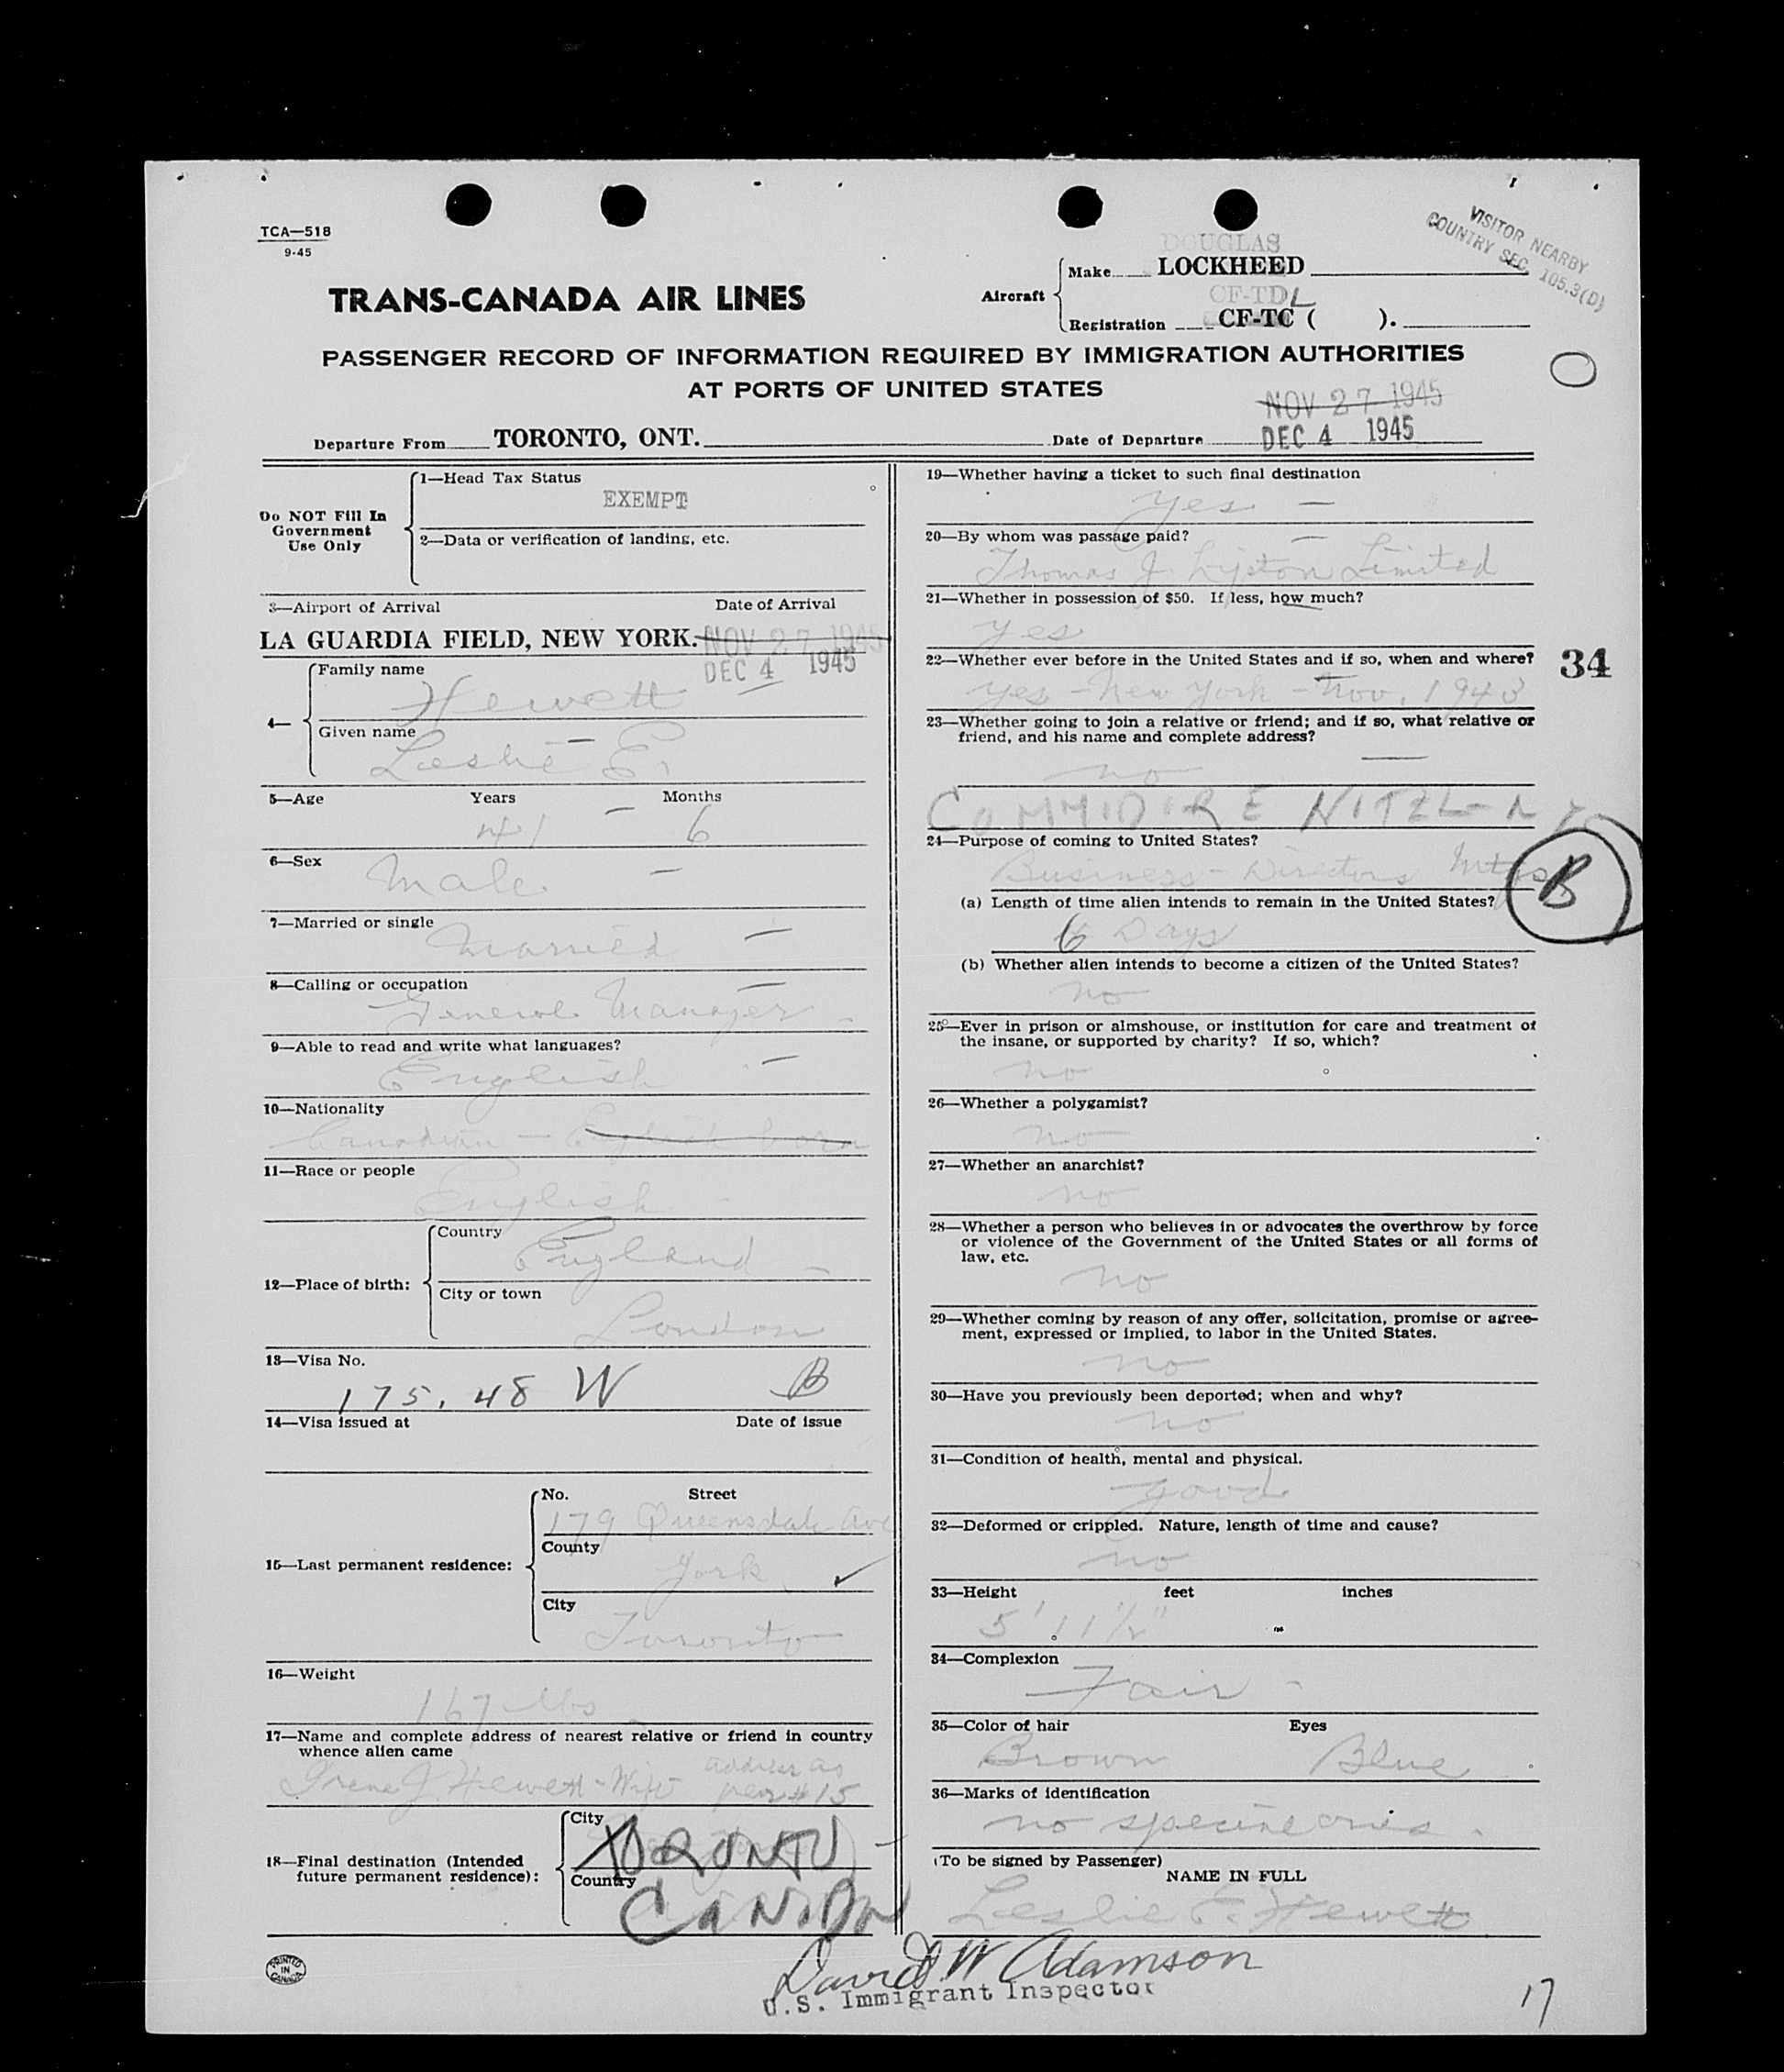 TCA—518
9-45
VISITOR NEARBY
COUNTRY SEC. 105.3(D)
DOUGLAS
Make LOCKHEED
Aircraft
CF-TDL
Registration CF-TC ( ).
TRANS-CANADA AIR LINES
PASSENGER RECORD OF INFORMATION REQUIRED BY IMMIGRATION AUTHORITIES
AT PORTS OF UNITED STATES
NOV 27 1945
Departure From TORONTO, ONT. Date of Departure DEC 4 1945
Do NOT Fill In
Government
Use Only
1—Head Tax Status
EXEMPT
2—Data or verification of landing, etc.
3—Airport of Arrival Date of Arrival
LA GUARDIA FIELD, NEW YORK. NOV 27 1945
DEC 4 1945
4—
Family name
Hewett
Given name
Leslie E.
5—Age Years Months
41 6
6—Sex
Male
7—Married or single
Married
8—Calling or occupation
General Manager
9—Able to read and write what languages?
English
10—Nationality
Canadian — English born
11—Race or people
English
12—Place of birth:
Country
England
City or town
London
13—Visa No.
175.48 W B
14—Visa issued at Date of issue
15—Last permanent residence:
No. Street
179 Queensdale Ave
County
York
City
Toronto
16—Weight
167 lbs
17—Name and complete address of nearest relative or friend in country
whence alien came
Irene J. Hewett - Wife address as
per #15
18—Final destination (Intended
future permanent residence):
City
TORONTO
Country
CANADA
19—Whether having a ticket to such final destination
Yes —
20—By whom was passage paid?
Thomas J. Lipton Limited
21—Whether in possession of $50. If less, how much?
yes
22—Whether ever before in the United States and if so, when and where?
yes - New York - Nov. 1943
34
23—Whether going to join a relative or friend; and if so, what relative or
friend, and his name and complete address?
no
COMMIDIRE HITZL - NY
24—Purpose of coming to United States?
Business - Directors Mtgs
B
(a) Length of time alien intends to remain in the United States?
6 Days
(b) Whether alien intends to become a citizen of the United States?
no
25—Ever in prison or almshouse, or institution for care and treatment of
the insane, or supported by charity? If so, which?
no
26—Whether a polygamist?
no
27—Whether an anarchist?
no
28—Whether a person who believes in or advocates the overthrow by force
or violence of the Government of the United States or all forms of
law, etc.
no
29—Whether coming by reason of any offer, solicitation, promise or agree-
ment, expressed or implied, to labor in the United States.
no
30—Have you previously been deported; when and why?
no
31—Condition of health, mental and physical.
good
32—Deformed or crippled. Nature, length of time and cause?
no
33—Height feet inches
5' 11 1/2"
34—Complexion
Fair
35—Color of hair Eyes
Brown Blue
36—Marks of identification
no special ones.
(To be signed by Passenger)
NAME IN FULL
Leslie E. Hewett
PRINTED
IN
CANADA
David W Adamson
U.S. Immigrant Inspector
17